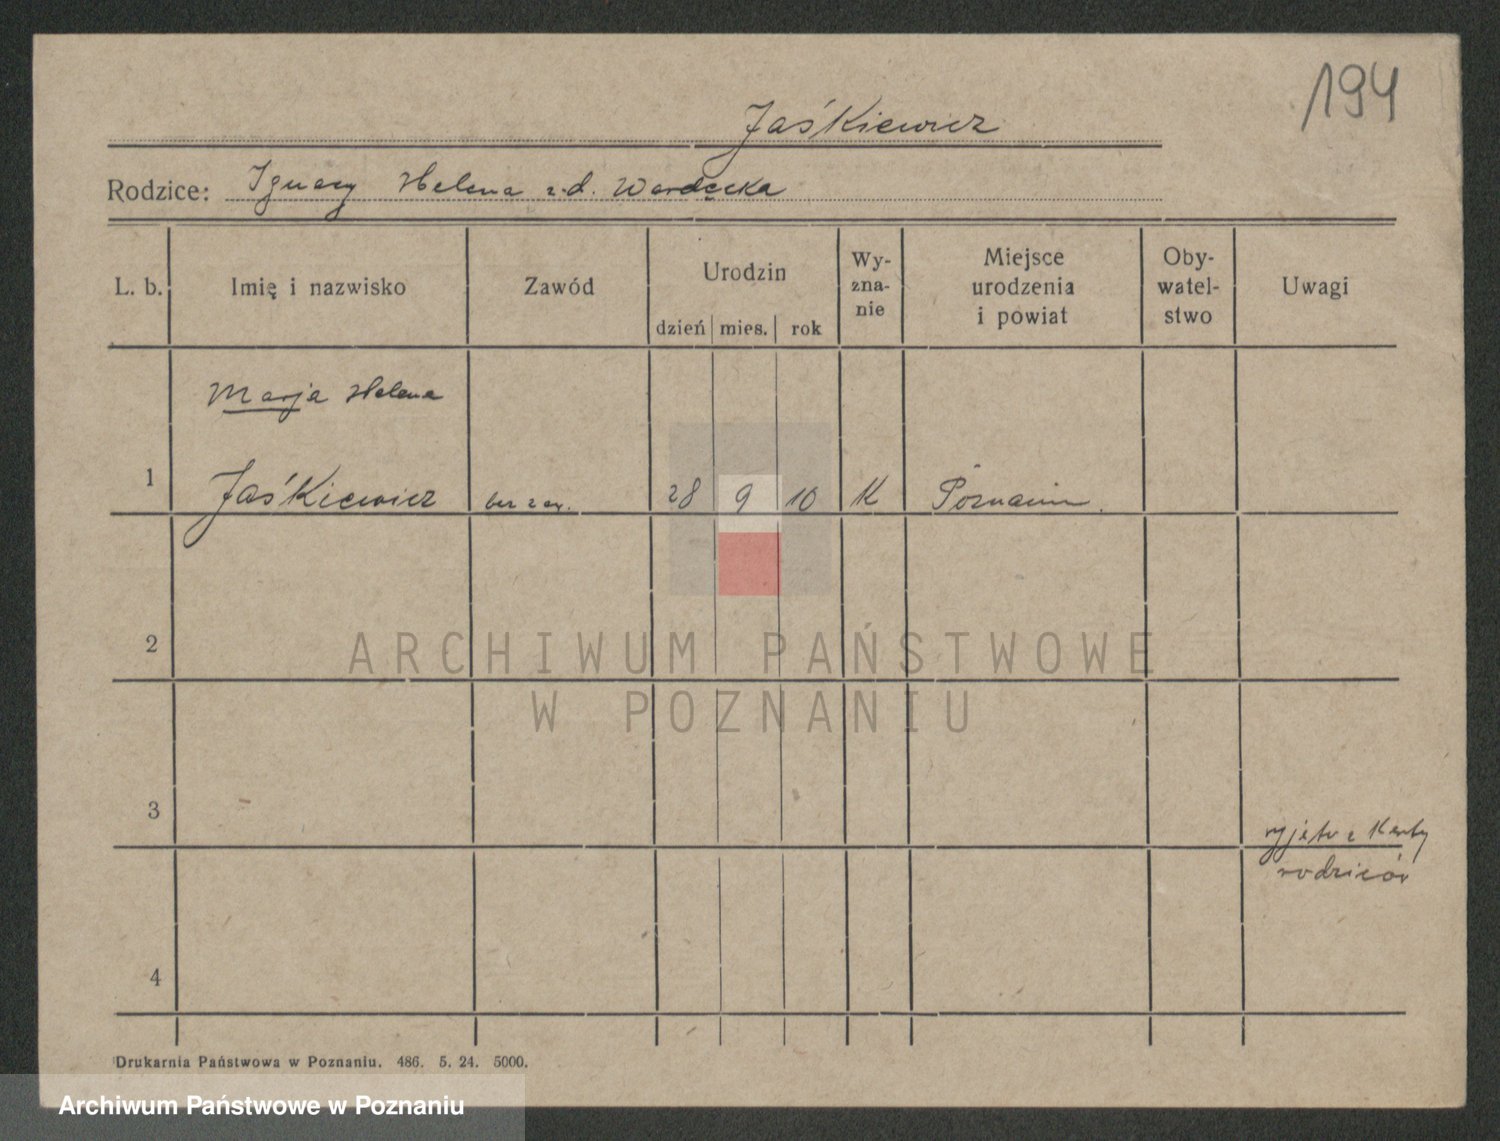 194
Jaśkiewicz
Rodzice: Ignacy Helena z.d. Wardęcka
L. b. Imię i nazwisko Zawód Urodzin dzień mies. rok Wy-zna-nie Miejsce urodzenia i powiat Oby-watel-stwo Uwagi
Marja Helena
1 Jaśkiewicz bez zaw. 28 9 10 K Poznaniu.
2
ARCHIWUM PAŃSTWOWE
W POZNANIU
3
wyjęto z Karty
rodziców
4
Drukarnia Państwowa w Poznaniu. 486. 5. 24. 5000.
Archiwum Państwowe w Poznaniu